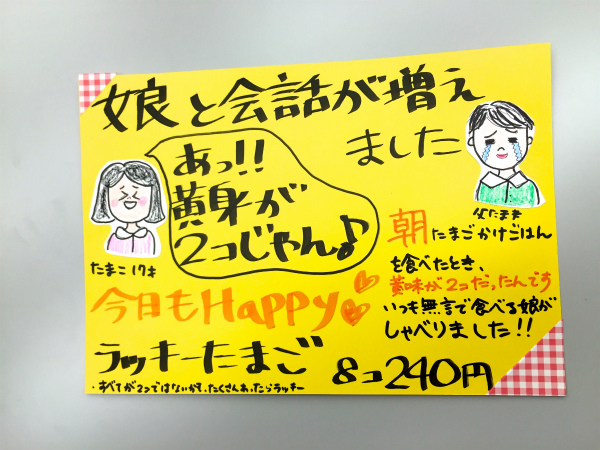 娘と会話が増え
ました
あっ!!
黄身が
2コじゃん♪
たまこ 17才
父たまき
朝たまごかけごはん
を食べたとき、
黄味が2コだったんです
いつも無言で食べる娘が
しゃべりました!!
今日もHappy
ラッキーたまご
8コ240円
・すべてが2つではないかも、たくさんあったらラッキー